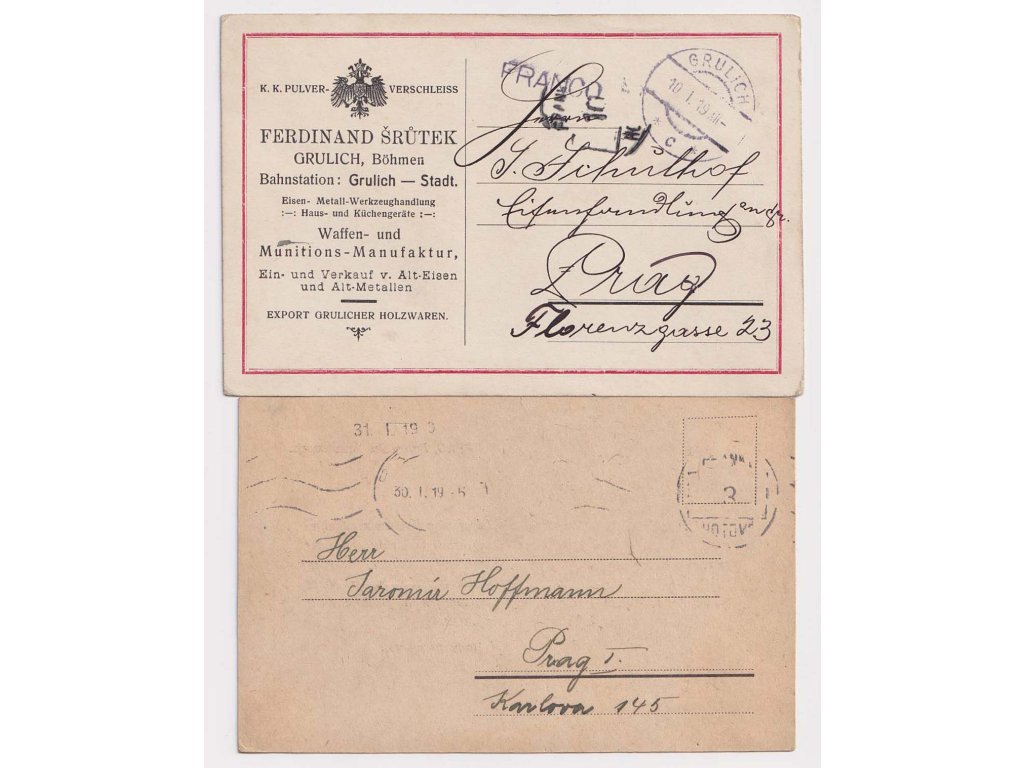 K. K. PULVER- VERSCHLEISS
FERDINAND ŠRŮTEK
GRULICH, Böhmen
Bahnstation: Grulich — Stadt.
Eisen- Metall-Werkzeughandlung
:—: Haus- und Küchengeräte :—:
Waffen- und
Munitions-Manufaktur,
Ein- und Verkauf v. Alt-Eisen
und Alt-Metallen
EXPORT GRULICHER HOLZWAREN.
FRANCO
GRULICH
10. I. 19
* c *
Herrn
S. Schulhof
Eisenhandlung en gr.
Prag
Florenzgasse 23
31. I. 19
30. I. 19
3
Herr
Jaromír Hoffmann
Prag I.
Karlova 145